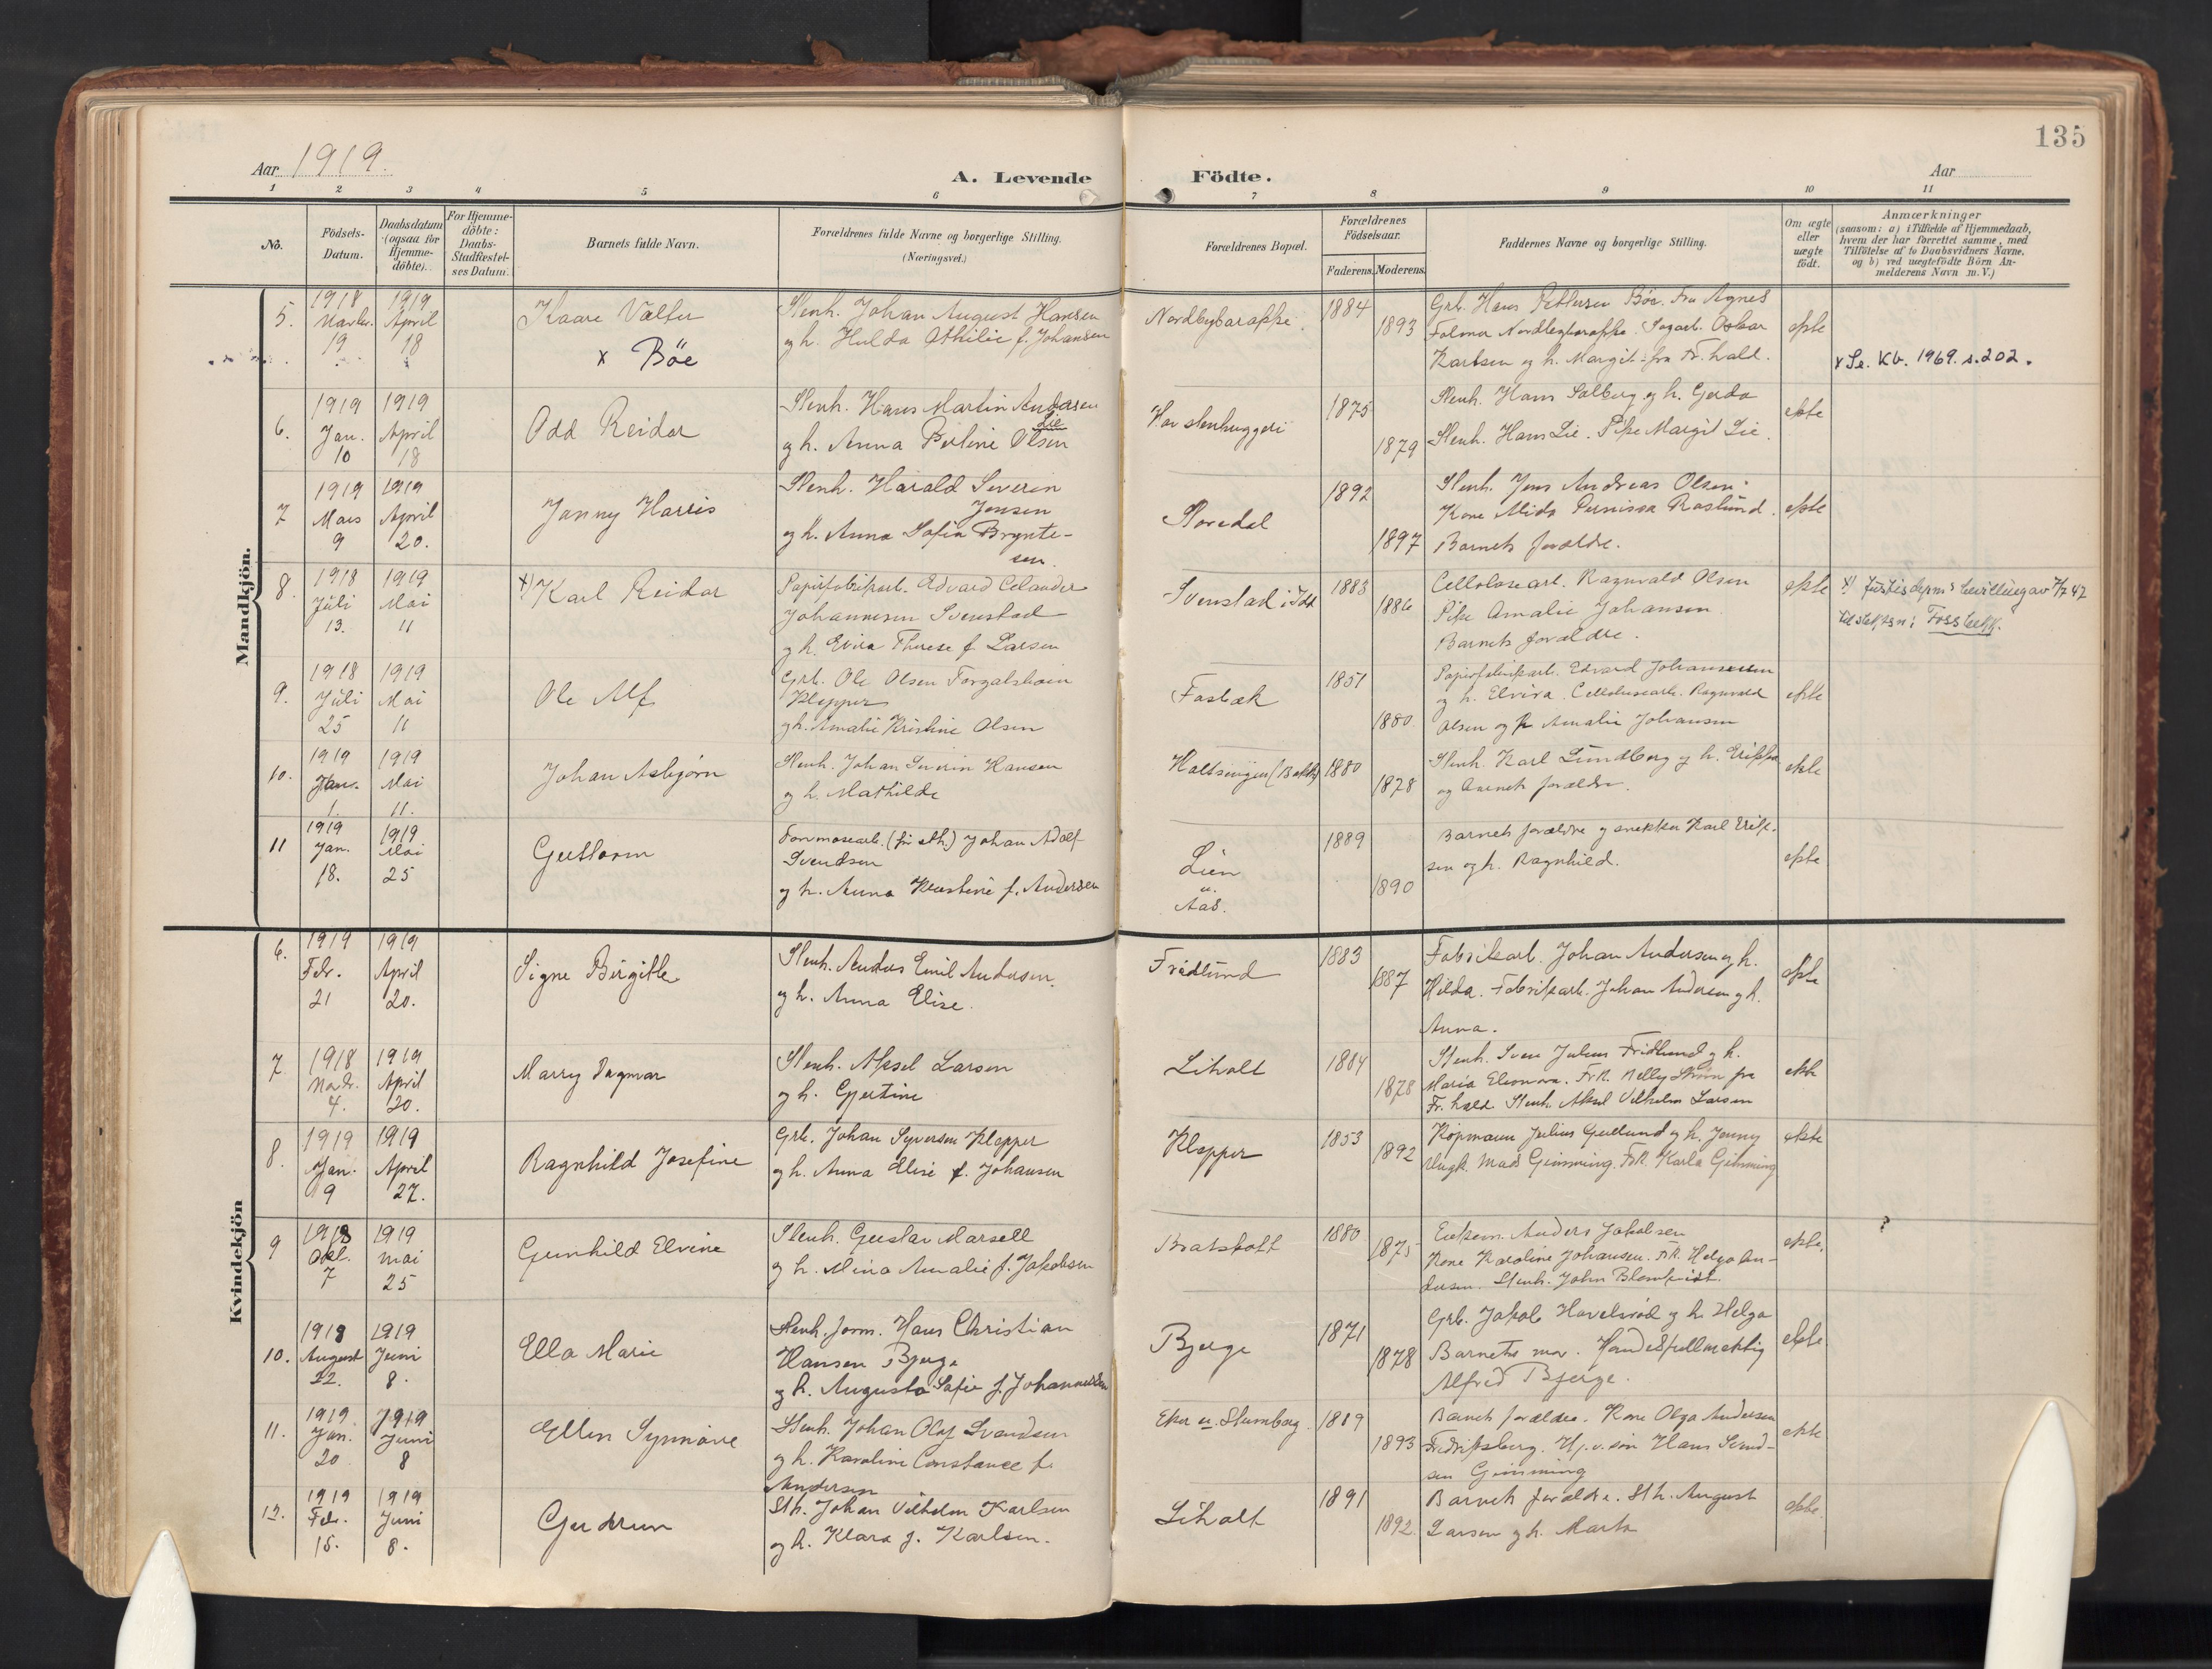 135
Aar 1919.
A. Levende Födte.
Aar
1 2 3 4 5 6 7 8 9 10 11
No.
Födsels-
Datum.
Daabsdatum
(ogsaa for
Hjemme-
döbte).
For Hjemme-
döbte:
Daabs-
Stadfæstel-
ses Datum.
Barnets fulde Navn.
Forældrenes fulde Navne og borgerlige Stilling.
(Næringsvei.)
Forældrenes Bopæl.
Forældrenes
Födselsaar.
Faderens. Moderens.
Faddernes Navne og borgerlige Stilling.
Om ægte
eller
uægte
født.
Anmærkninger
(saasom: a) i Tilfælde af Hjemmedaab,
hvem der har forrettet samme, med
Tilføielse af to Daabsvidners Navne,
og b) ved uægtefödte Börn An-
melderens Navn m.V.)
Mandkjön.
5.
1918
Novbr.
19
1919
April
18
Kaare Valter
x Böe
Stenh. Johan August Hansen
og h. Hulda Othilie f. Johansen
Nordbybarakke.
1884
1893
Grb. Hans Pettersen Böe. Fru Agnes
Folmer Nordbybarakke. Sagarb. Oskar
Karlsen og h. Margit fra Fr.hald.
ekte
x Se. Kb. 1969. s. 202.
6.
1919
Jan.
10
1919
April
18
Odd Reidar
Stenh. Hans Martin Andersen
Lie
og h. Anna Perline Olsen
Hov stenhuggeri
1875
1879
Stenh. Hans Solberg og h. Gerda
Stenh. Hans Lie. Pike Margit Lie.
ekte
7
1919
Mars
9
1919
April
20.
Janny Harris
Stenh. Harald Severin
Jensen
og h. Anna Sofia Brynte-
sen.
Storedal
1892
1897
Stenh. Jens Andreas Olsen.
Kone Alida Pernissa Roslund.
Barnets forældre.
ekte
8.
1918
Juli
13.
1919
Mai
11
x) Karl Reidar
Papirfabrikarb. Edvard Celander
Johannesen Svenstad
og h. Elvira Therese f. Larsen
Svenstad i Idd
1883
1886
Cellulosearb. Ragnvald Olsen
Pike Amalie Johansen
Barnets forældre.
ekte
x) Justisdepm's bevilling av 7/7 47
til slektsn: Fossbekk.
9.
1918
Juli
25
1919
Mai
11
Ole Alf
Grb. Ole Olsen Torgalsbøen
Klepper
og h. Amalie Kristine Olsen
Fosbæk
1851
1880.
Papirfabrikarb. Edvard Johannesen
og h. Elvira. Cellulosearb. Ragnvald
Olsen og p. Amalie Johansen
ekte
10.
1919
Jan.
1.
1919
Mai
11.
Johan Asbjørn
Stenh. Johan Severin Hansen
og h. Mathilde
1880
1878
Stenh. Karl Lundberg og h. Erikka
og barnets forældre.
ekte
11
1919
Jan.
18.
1919
Mai
25
Guttorm
Torvmosearb. (før sth.) Johan Adolf
Svendsen
og h. Anna Kristine f. Andersen
Lien
u.
Aas.
1889
1890
Barnets forældre og snekker Karl Erik-
sen og h. Ragnhild.
ekte
Kvindekjön
6.
1919
Febr.
21
1919
April
20.
Signe Birgitte
Stenh. Anders Emil Andersen.
og h. Anna Elise.
Fridlund
1883
1887
Fabrikarb. Johan Andersen og h.
Hilda. Fabrikarb. Johan Andersen og h.
Anna.
ekte
7.
1918
Novbr.
4.
1919
April
20.
Marry Dagmar
Stenh. Aksel Larsen
og h. Gjertine
Liholt
1884
1878
Stenh. Sven Julius Fridlund og h.
Maria Eleonora. Frk. Nelly Strøm fra
Fr.hald. Stenh. Aksel Vilhelm Larsen
ekte
8.
1919
Jan.
9
1919
April
27.
Ragnhild Josefine
Grb. Johan Syversen Klepper
og h. Anna Elise f. Johansen
Klepper
1853
1892
Kopmann Julius Gullund og h. Jenny
Ungk. Mads Gimming. Frk. Karla Gimming
ekte
9
1918
Okt.
7
1919
Mai
25
Gunhild Elvine
Stenh. Gustav Marsell
og h. Mina Amalie f. Jakobsen
Bratskott
1880
1875
Enkem. Anders Jakobsen
Kone Karoline Johansen. Frk. Helga An-
dersen. Stenh. John Blomkvist.
ekte.
?
10.
1918
August
22.
1919
Juni
8.
Ella Marie
Stenh. form. Hans Christian
Hansen Bjerge
og h. Augusta Sofie f. Johannessen
Bjerge
1871
1878
Grb. Jakob Havelsrød og h. Helga
Barnets mor. Handelsfullmektig
Alfred Bjerge.
ekte.
11.
1919.
Jan.
20
1919
Juni
8
Ellen Synnøve
Stenh. Johan Olaf Svendsen
og h. Karoline Constance f.
Andersen
Eker u. Stumberg.
1889
1893
Barnets forældre. Kone Olga Andersen
Fredriksberg. Hj.v. søn Hans Svend-
sen Gimming
ekte
12.
1919
Febr.
15.
1919
Juni
8.
Gudrun
Sth. Johan Vilhelm Karlsen
og h. Klara f. Karlsen.
Liholt
1891
1892.
Barnets forældre. Sth. August
Larsen og h. Marta
ekte.